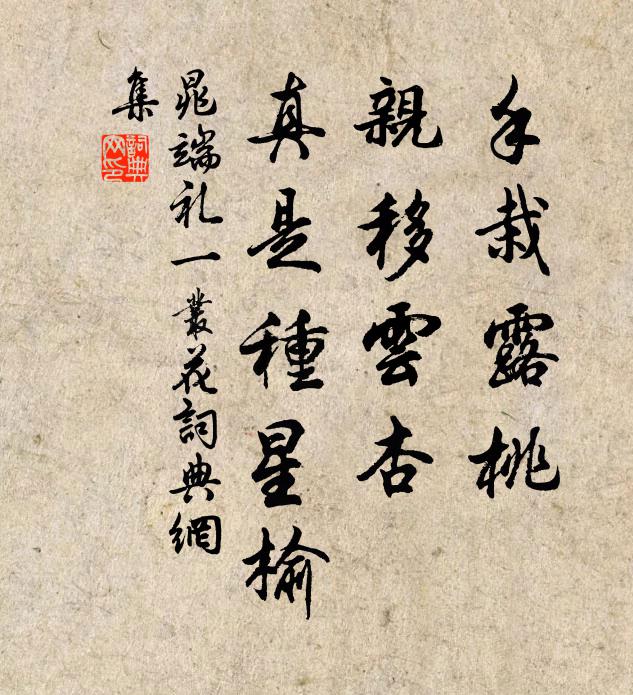 手栽露桃
親移雲杏
真是種星榆
晁端礼一叢花詞典網
集
詞典網印